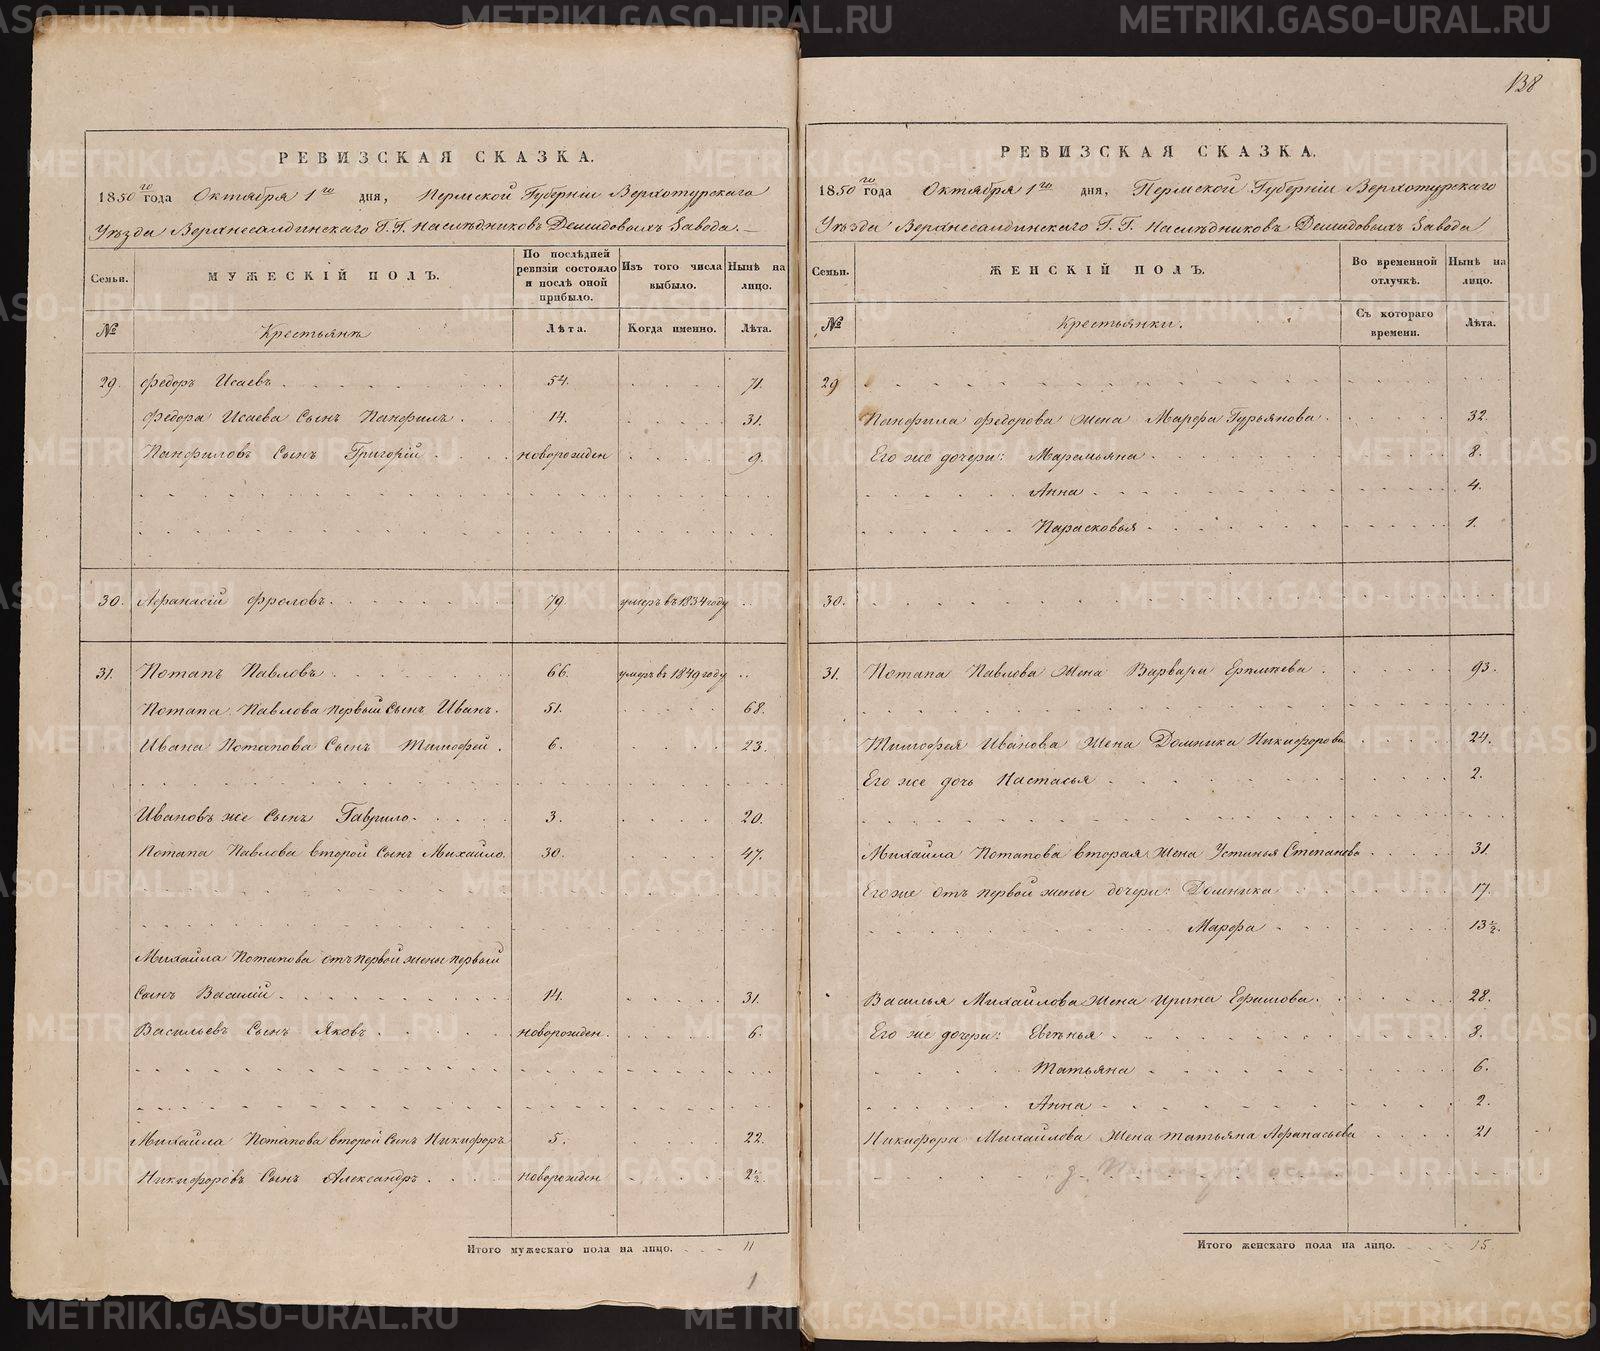 138
РЕВИЗСКАЯ СКАЗКА.
1850го года Октября 1го дня, Пермской Губерніи Верхотурскаго
Уѣзда Верхнесалдинскаго Г.Г. Наслѣдниковъ Демидовыхъ Завода.
Семьи.
МУЖЕСКІЙ ПОЛЪ.
По послѣдней ревизіи состояло и послѣ оной прибыло.
Изъ того числа выбыло.
Нынѣ на лицо.
№
Крестьянъ
Лѣта.
Когда именно.
Лѣта.
29. Федоръ Исаевъ 54. 71.
Федора Исаева Сынъ Панфилъ 14. 31.
Панфиловъ Сынъ Григорій новорожден 9.
30. Афанасій Фроловъ 79. умеръ въ 1834 году
31. Потапъ Павловъ 66. умеръ въ 1849 году
Потапа Павлова первый Сынъ Иванъ. 51. 68.
Ивана Потапова Сынъ Тимофей 6. 23.
Ивановъ же Сынъ Гаврило. 3. 20.
Потапа Павлова второй Сынъ Михайло. 30. 47.
Михайла Потапова отъ первой жены первый
Сынъ Василій 14. 31.
Васильевъ Сынъ Яковъ новорожден. 6.
Михайла Потапова второй Сынъ Никифоръ 5. 22.
Никифоровъ Сынъ Александръ новорожден 2½
Итого мужескаго пола на лицо. 11
1
РЕВИЗСКАЯ СКАЗКА.
1850го года Октября 1го дня, Пермской Губерніи Верхотурскаго
Уѣзда Верхнесалдинскаго Г.Г. Наслѣдниковъ Демидовыхъ Завода
Семьи.
ЖЕНСКІЙ ПОЛЪ.
Во временной отлучкѣ.
Нынѣ на лицо.
№
Крестьянки.
Съ котораго времени.
Лѣта.
29
Панфила Федорова Жена Марфа Гурьянова 32.
Его же дочери: Маремьяна 8.
Анна 4.
Парасковья 1.
30.
31. Потапа Павлова Жена Варвара 93.
Тимофея Иванова Жена Домника Никифорова 24.
Его же дочь Настасья 2.
Михайла Потапова вторая Жена Устинья Степанова 31.
Его же отъ первой жены дочери: Домника 17.
Марфа 13½.
Василья Михайлова Жена Ирина Ефимова 28.
Его же дочери: Евгѣнья 8.
Татьяна 6.
Анна 2.
Никифора Михайлова Жена Татьяна Афанасьева 21
Итого женскаго пола на лицо. 15
METRIKI.GASO-URAL.RU